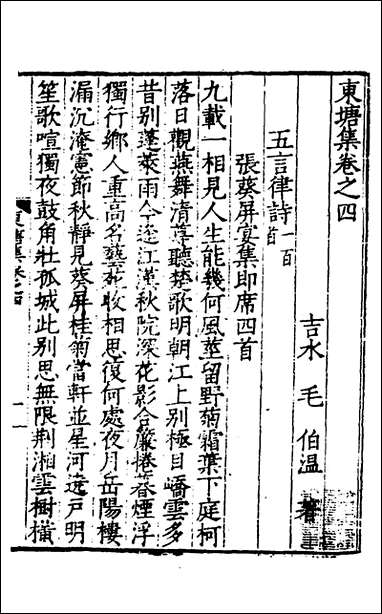 東塘集卷之四
吉水 毛 伯溫 著
五言律詩一百首
張葵屏宴集即席四首
九載一相見人生能幾何風莖留野菊霜葉下庭柯
落日觀燕舞清尊聽楚歌明朝江上別極目嶠雲多
昔别蓬萊雨今逢江漢秋院深花影合簾捲暮煙浮
獨行鄉人重高名藝苑收相思復何處夜月岳陽樓
漏沉淹憲節秋靜見葵屏桂菊當軒並星河遶戶明
笙歌喧獨夜鼓角壯孤城此别思無限荆湘雲樹橫
東塘集卷之四
一